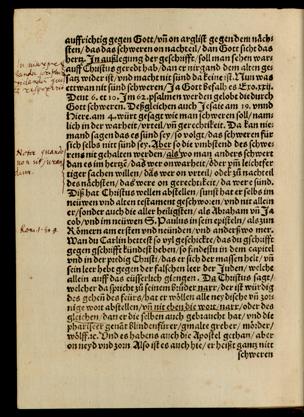 auffrichtig gegen Gott/ vn̄ on arglist gegen dem näch
sten/ das das schweren on nachteil/ dan Gott sicht das
hertz. In außlegung der geschrifft/ soll man sehen war
auff Christus geredt hab/ dan er nirgend dem alten ge
satz wider ist/ vnd macht nit sünd da keine ist. Nun was
ett wan nit sünd schweren/ Ja Gott befalh es Exo. xxij.
Deut. 6. et 10. Im 62. psalmen werden gelobt die durch
Gott schweren. Deßgleichen auch Jesaie am 19. vnnd
Hiere. am 4. würt gesagt wie man schweren soll/ näm
lich in der warheit/ vrteil/ vn̄ gerechtickeit. Da kan nie
mand sagen das es sünd sey/ so volgt/ das schweren für
sich selbs nitt sünd sey. Aber so die vmbstend des schwe
rens nit gehalten werden/ als wo man anders schwert
dan es im hertz/ das wer on warheit/ oder vm̄ leichtfer
tiger sachen willen/ das wer on vrteil/ oder zů nachteil
des nächsten/ das were on gerechtickeit/ da were sünd.
Diß hat Christus wellen abstellen/ sunst hat er selbs im
neüwen vnd alten testament geschworen/ vnd nit allein
er/ sonder auch die aller heiligsten/ als Abraham vn̄ Ja
cob/ vnd im neüwen S. Paulus in sein episteln/ als zun
Römern am ersten vnd neünden/ vnd anderßwo mer.
Wan du Carlin hettest so vyl geschickte/ das du gschrifft
gegen gschrifft kündest heben/ so findestu in dem capitel
vnd in der predig Christi/ das er sich der massen helt/ vn̄
sein leer hebt gegen der falschen leer der Juden/ welche
allein auff das eüsserlich giengen. Da Christus sagt/
welcher da spricht zů seinem brůder narr/ der ist würdig
des gehen des feürs/ hat er wöllen alle neydische vn̄ zor
nige wort abstellen/ vn̄ nit eben die wort/ narr/ oder des
gleichen/ dan er die selben auch gebraucht hat/ vnd die
phariseer genāt blindenfürer/ gmalte greber/ mörder/
wölff. Vnd es habens auch die Apostel gethan/ aber
on neyd vnd zorn. Also ist es auch hie/ er heißt gantz nitt
schweren